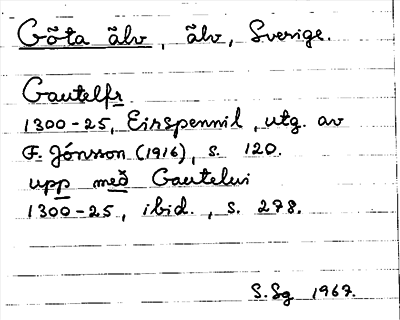 Göta älv, älv, Sverige.
Gautelfr
1300-25, Eirspennil, utg. av
F. Jónsson (1916), s. 120.
upp með Gautelvi
1300-25, ibid., s. 278.
S.Sg 1967.